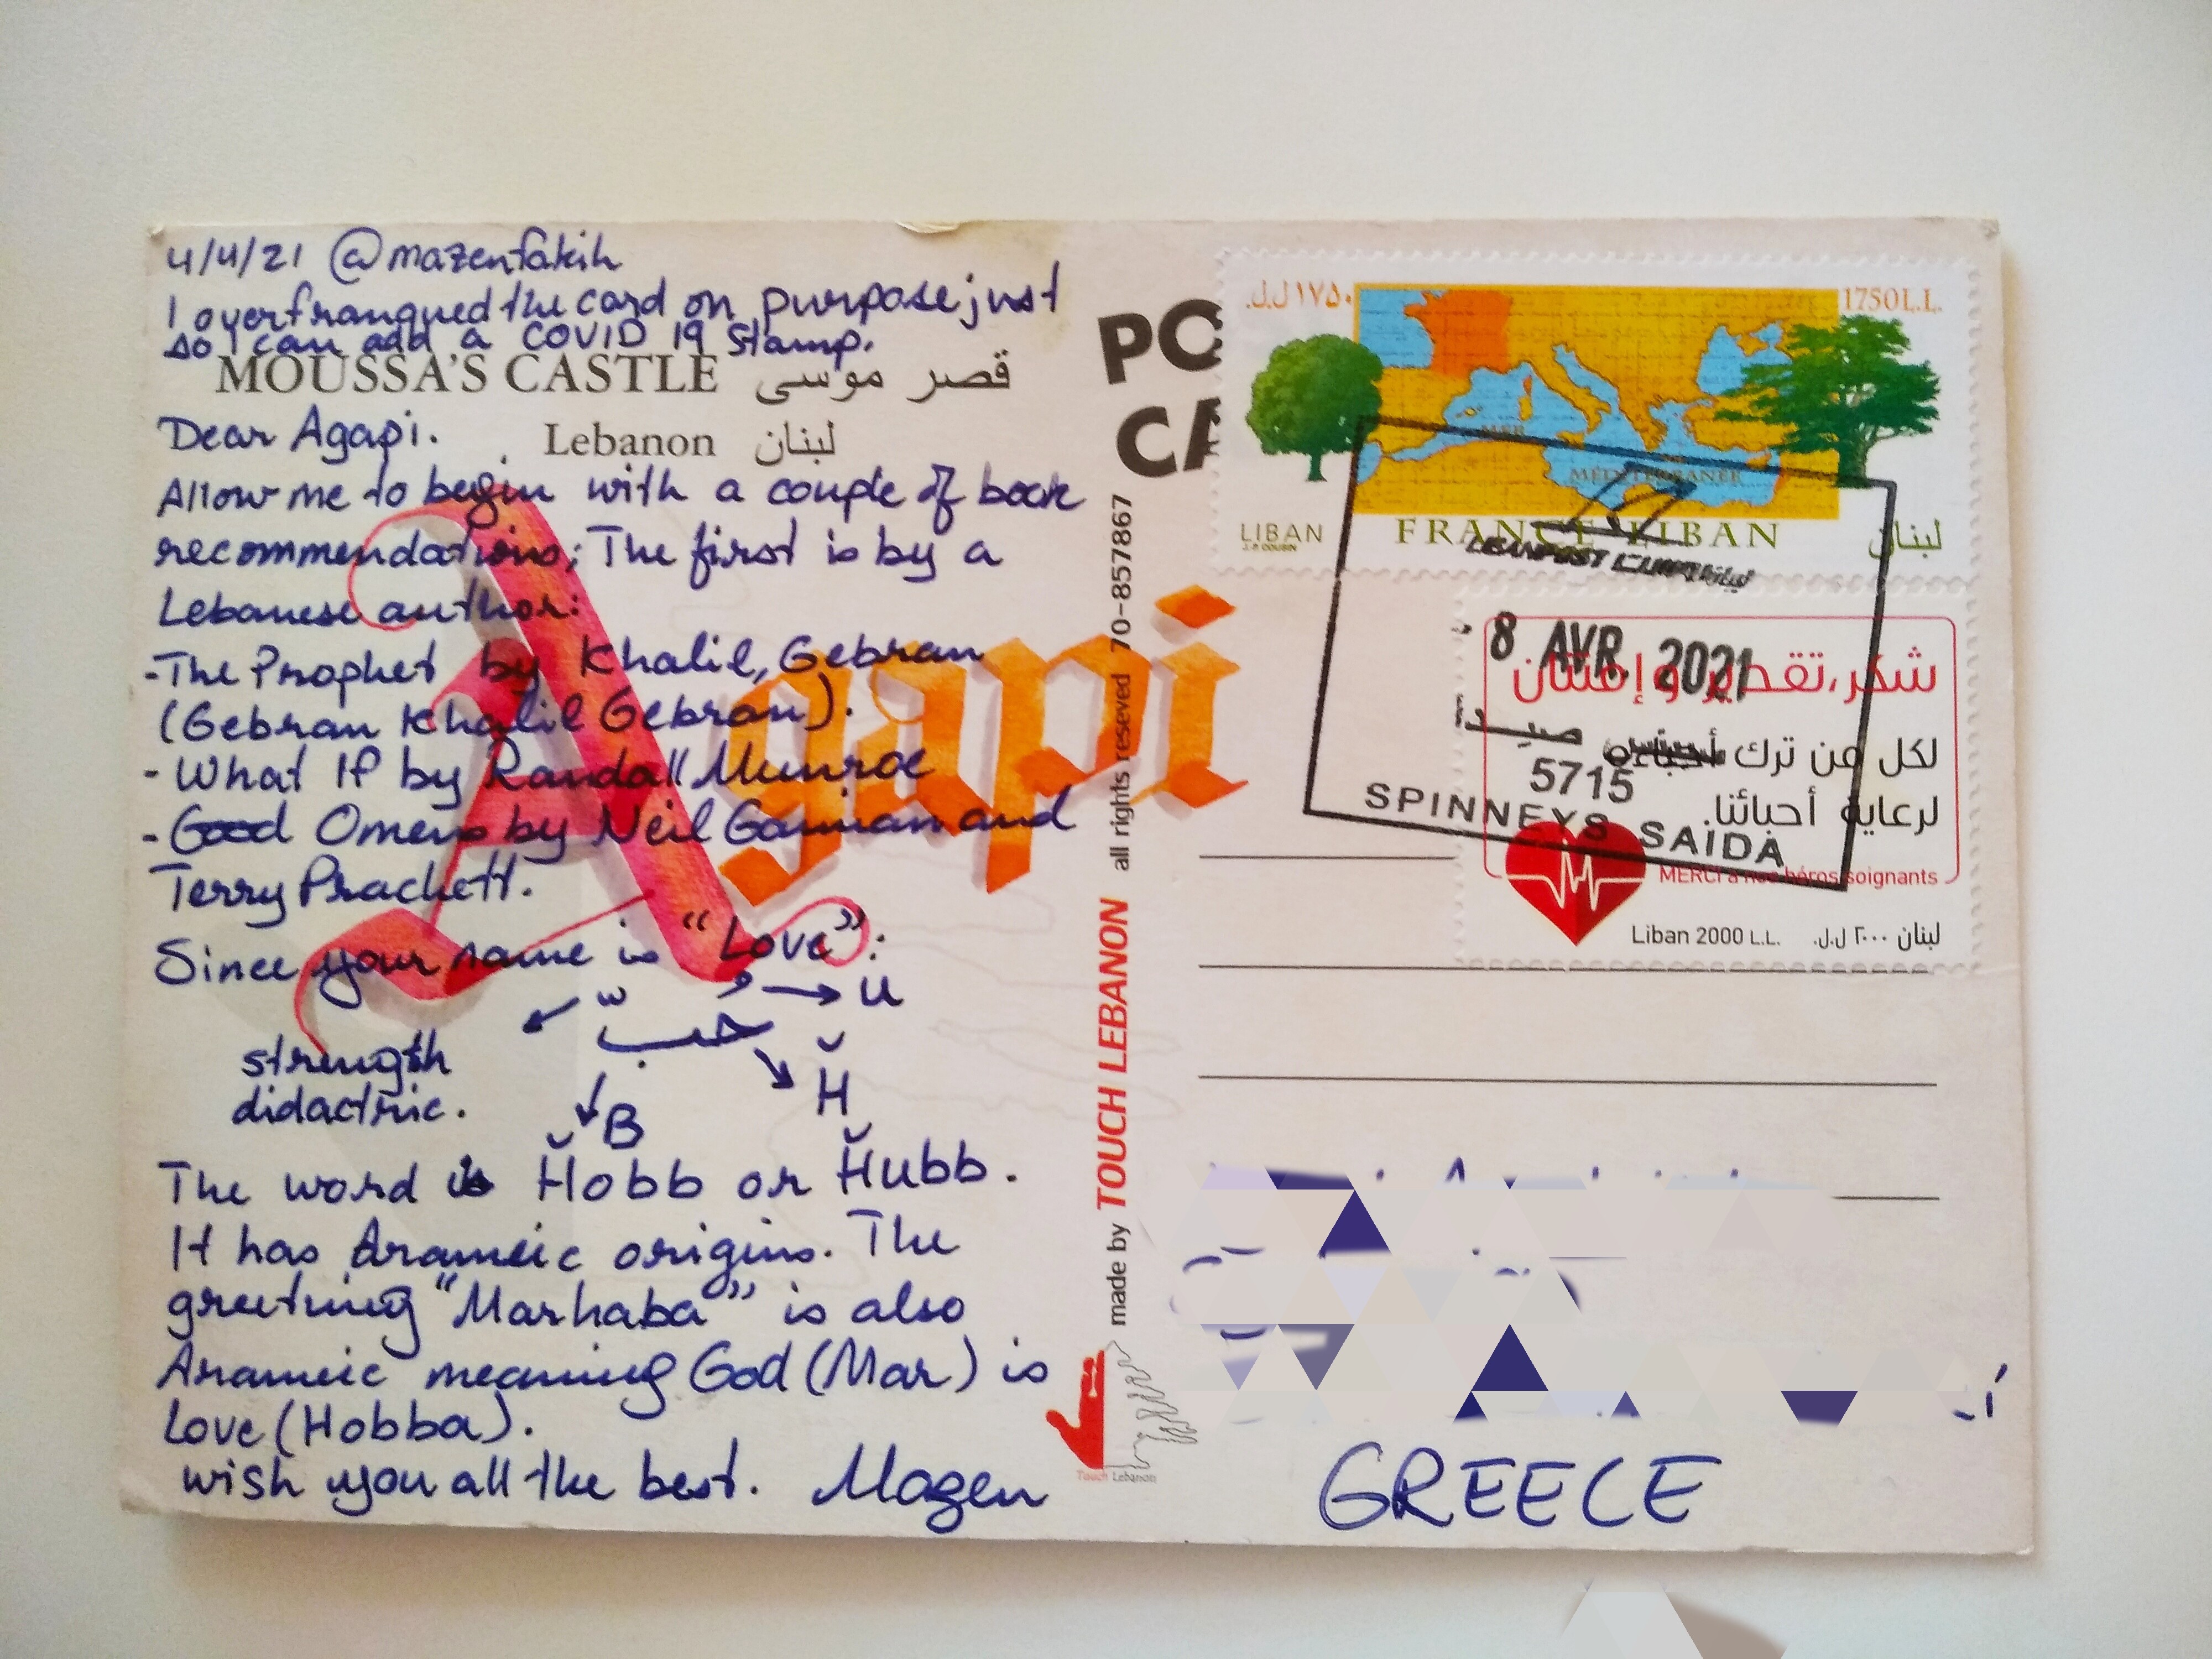 4/4/21 @mazenfakih
I overfranqued the card on purpose just
so I can add a COVID 19 stamp.
MOUSSA'S CASTLE قصر موسى
Lebanon لبنان
Dear Agapi.
Allow me to begin with a couple of book
recommendations; The first is by a
Lebanese author:
-The Prophet by Khalil, Gebran
(Gebran Khalil Gebran).
- What If by Randall Munroe
- Good Omens by Neil Gaiman and
Terry Prachett.
Since your name is "Love":
حُبّ
u
strength
didactric.
B
Ȟ
The word is Ȟobb or Ȟubb.
It has Arameic origins. The
greeting "Marhaba" is also
Arameic meaning God (Mar) is
Love (Hobba).
wish you all the best. Mazen
Agapi
PO
CA
made by TOUCH LEBANON all rights reseved 70-857867
Touch Lebanon
١٧٥٠ ل.ل.
1750 L.L.
MER
MÉDITERRANÉE
LIBAN FRANCE LIBAN لبنان
LIBANPOST
8 AVR. 2021
صيدا
5715
SPINNEYS SAIDA
شكر،تقدير وإمتنان
لكل من ترك أحباءه
لرعاية أحبائنا.
MERCI à nos héros soignants
Liban 2000 L.L. لبنان ٢٠٠٠ ل.ل.
GREECE